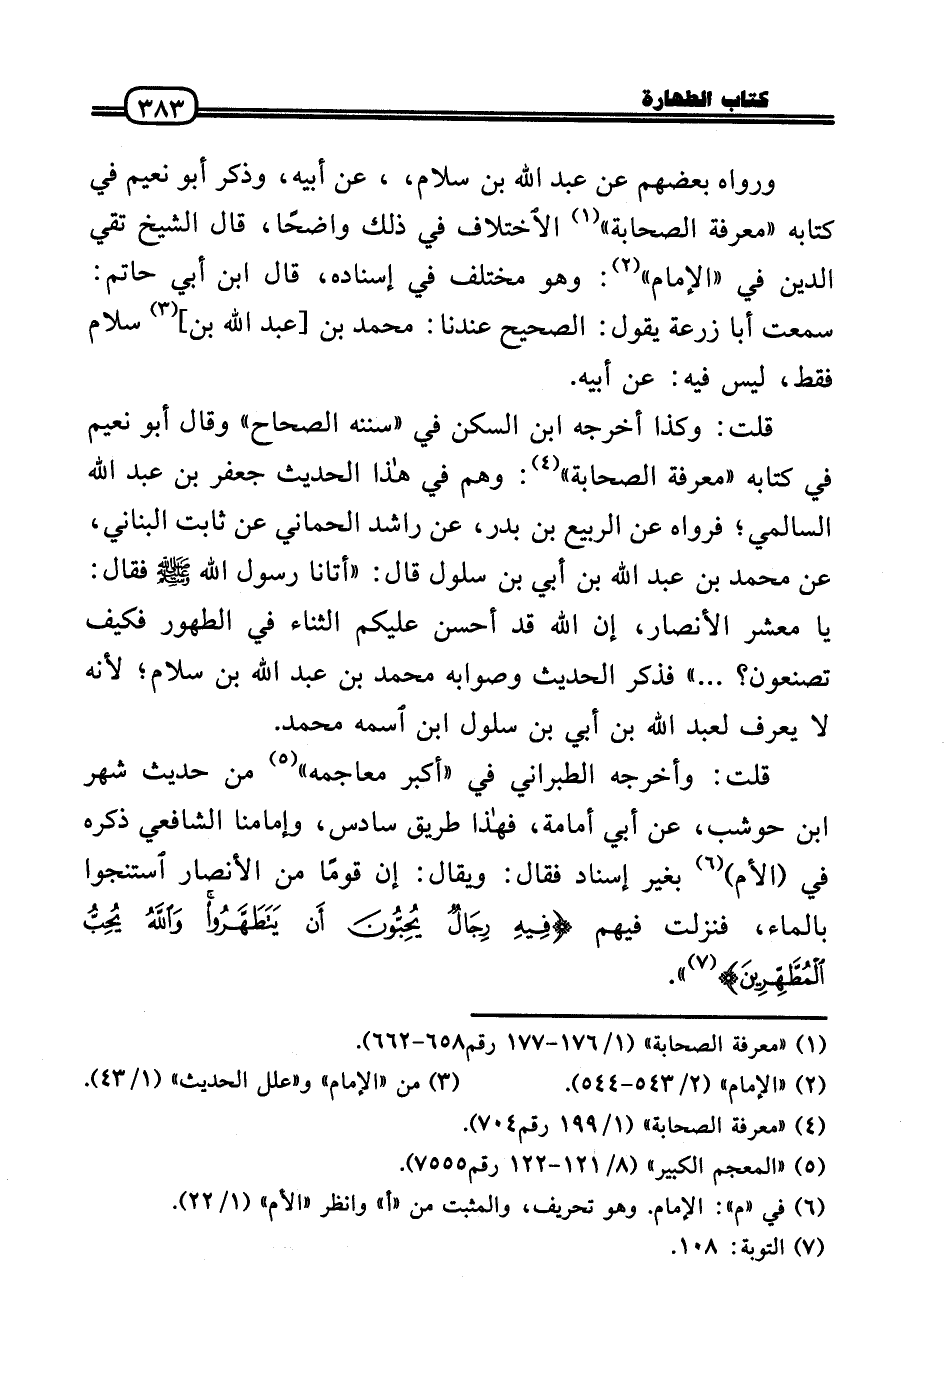 كتاب الطهارة
٣٨٣
ورواه بعضهم عن عبد الله بن سلام، ، عن أبيه، وذكر أبو نعيم في
كتابه «معرفة الصحابة»(١) الاختلاف في ذلك واضحًا، قال الشيخ تقي
الدين في «الإمام»(٢): وهو مختلف في إسناده، قال ابن أبي حاتم:
سمعت أبا زرعة يقول: الصحيح عندنا: محمد بن [عبد الله بن](٣) سلام
فقط، ليس فيه: عن أبيه.
قلت: وكذا أخرجه ابن السكن في «سننه الصحاح» وقال أبو نعيم
في كتابه «معرفة الصحابة»(٤): وهم في هذا الحديث جعفر بن عبد الله
السالمي؛ فرواه عن الربيع بن بدر، عن راشد الحماني عن ثابت البناني،
عن محمد بن عبد الله بن أبي بن سلول قال: «أتانا رسول الله ﷺ فقال:
يا معشر الأنصار، إن الله قد أحسن عليكم الثناء في الطهور فكيف
تصنعون؟ ...» فذكر الحديث وصوابه محمد بن عبد الله بن سلام؛ لأنه
لا يعرف لعبد الله بن أبي بن سلول ابن ٱسمه محمد.
قلت: وأخرجه الطبراني في «أكبر معاجمه»(٥) من حديث شهر
ابن حوشب، عن أبي أمامة، فهذا طريق سادس، وإمامنا الشافعي ذكره
في (الأم)(٦) بغير إسناد فقال: ويقال: إن قومًا من الأنصار ٱستنجوا
بالماء، فنزلت فيهم ﴿فِيهِ رِجَالٌ يُحِبُّونَ أَن يَتَطَهَّرُواْۚ وَٱللَّهُ يُحِبُّ
ٱلْمُطَّهِّرِينَ﴾(٧)».
(١) «معرفة الصحابة» (١/ ١٧٦-١٧٧ رقم٦٥٨-٦٦٢).
(٢) «الإمام» (٢/ ٥٤٣-٥٤٤). (٣) من «الإمام» و«علل الحديث» (١/ ٤٣).
(٤) «معرفة الصحابة» (١/ ١٩٩ رقم٧٠٤).
(٥) «المعجم الكبير» (٨/ ١٢١-١٢٢ رقم٧٥٥٥).
(٦) في «م»: الإمام. وهو تحريف، والمثبت من «أ» وانظر «الأم» (١/ ٢٢).
(٧) التوبة: ١٠٨.